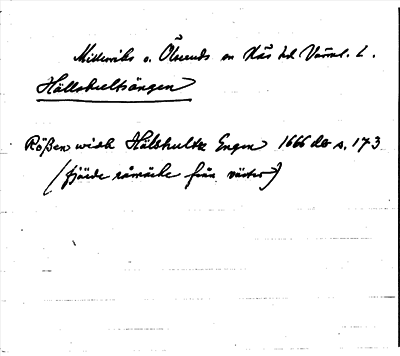 Millerviks o. Ölseruds sn Näs hd Värml. L.
Hällshultsängen
Rößen widh Hälshultz Engen 1666 db s. 173
(fjärde råmärke från väster)